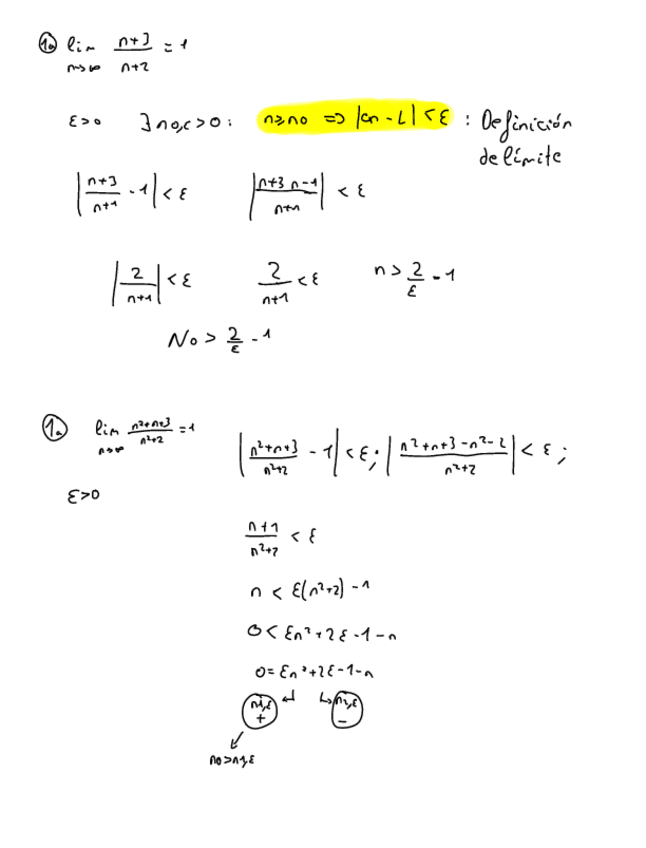 1a lim n+3/n+2 = 1
n→∞
ε>0 ∃ n0,ε>0 : n≥n0 => |an - L| < ε : Definición
de límite
|n+3/n+1 - 1| < ε |n+3 n-1/n+1| < ε
|2/n+1| < ε 2/n+1 < ε n > 2/ε - 1
No > 2/ε - 1
1a lim n²+n+3/n²+2 = 1 |n²+n+3/n²+2 - 1| < ε; |n²+n+3-n²-2/n²+2| < ε;
n→∞
ε>0
n+1/n²+2 < ε
n < ε(n²+2) - 1
0 < εn²+2ε-1-n
0 = εn²+2ε-1-n
n1,ε + n2,ε -
n0>n1,ε